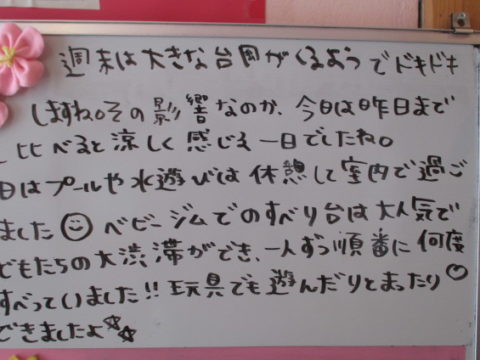 週末は大きな台風がくるようでドキドキ
しますね。その影響なのか、今日は昨日まで
比べると涼しく感じる一日でしたね。
日はプールや水遊びは休憩して室内で過ご
ました☺ ベビージムでのすべり台は大人気で
どもたちの大渋滞ができ、一人ずつ順番に何度
すべっていました!! 玩具でも遊んだりとまったり
できましたよ☆☆